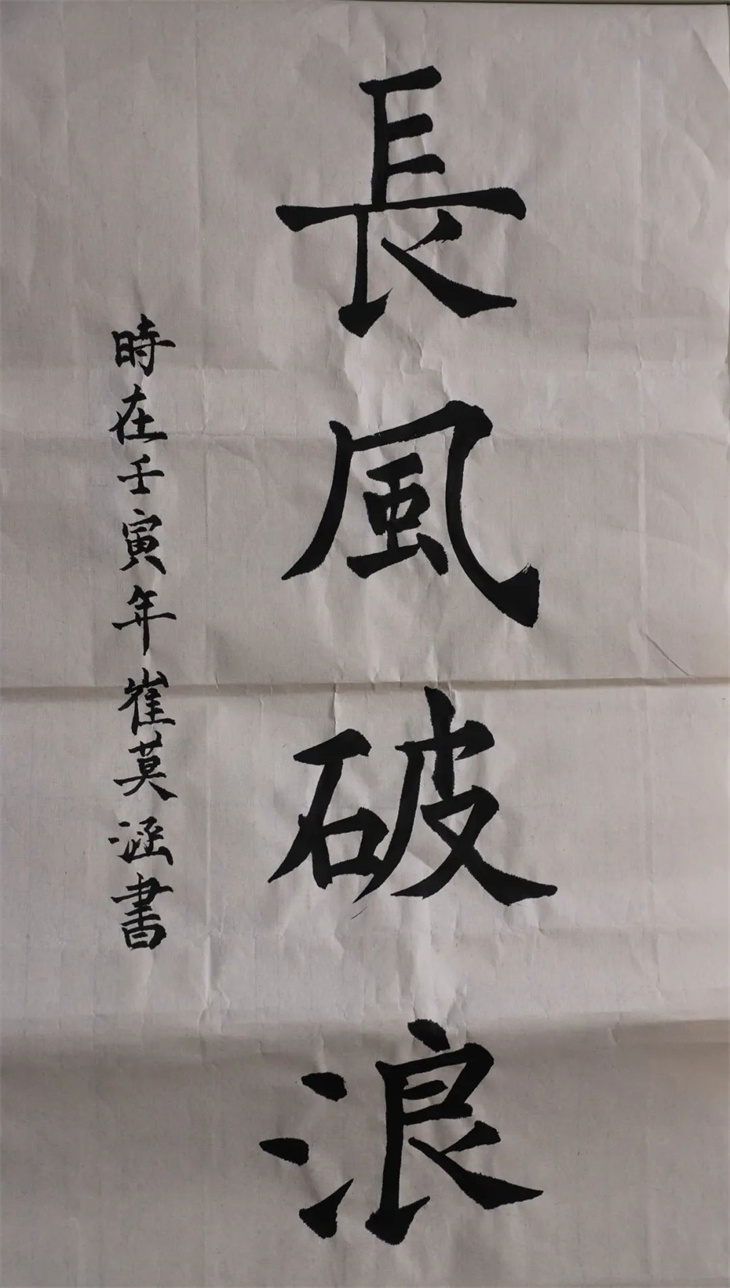 長風破浪
時在壬寅年崔莫涵書